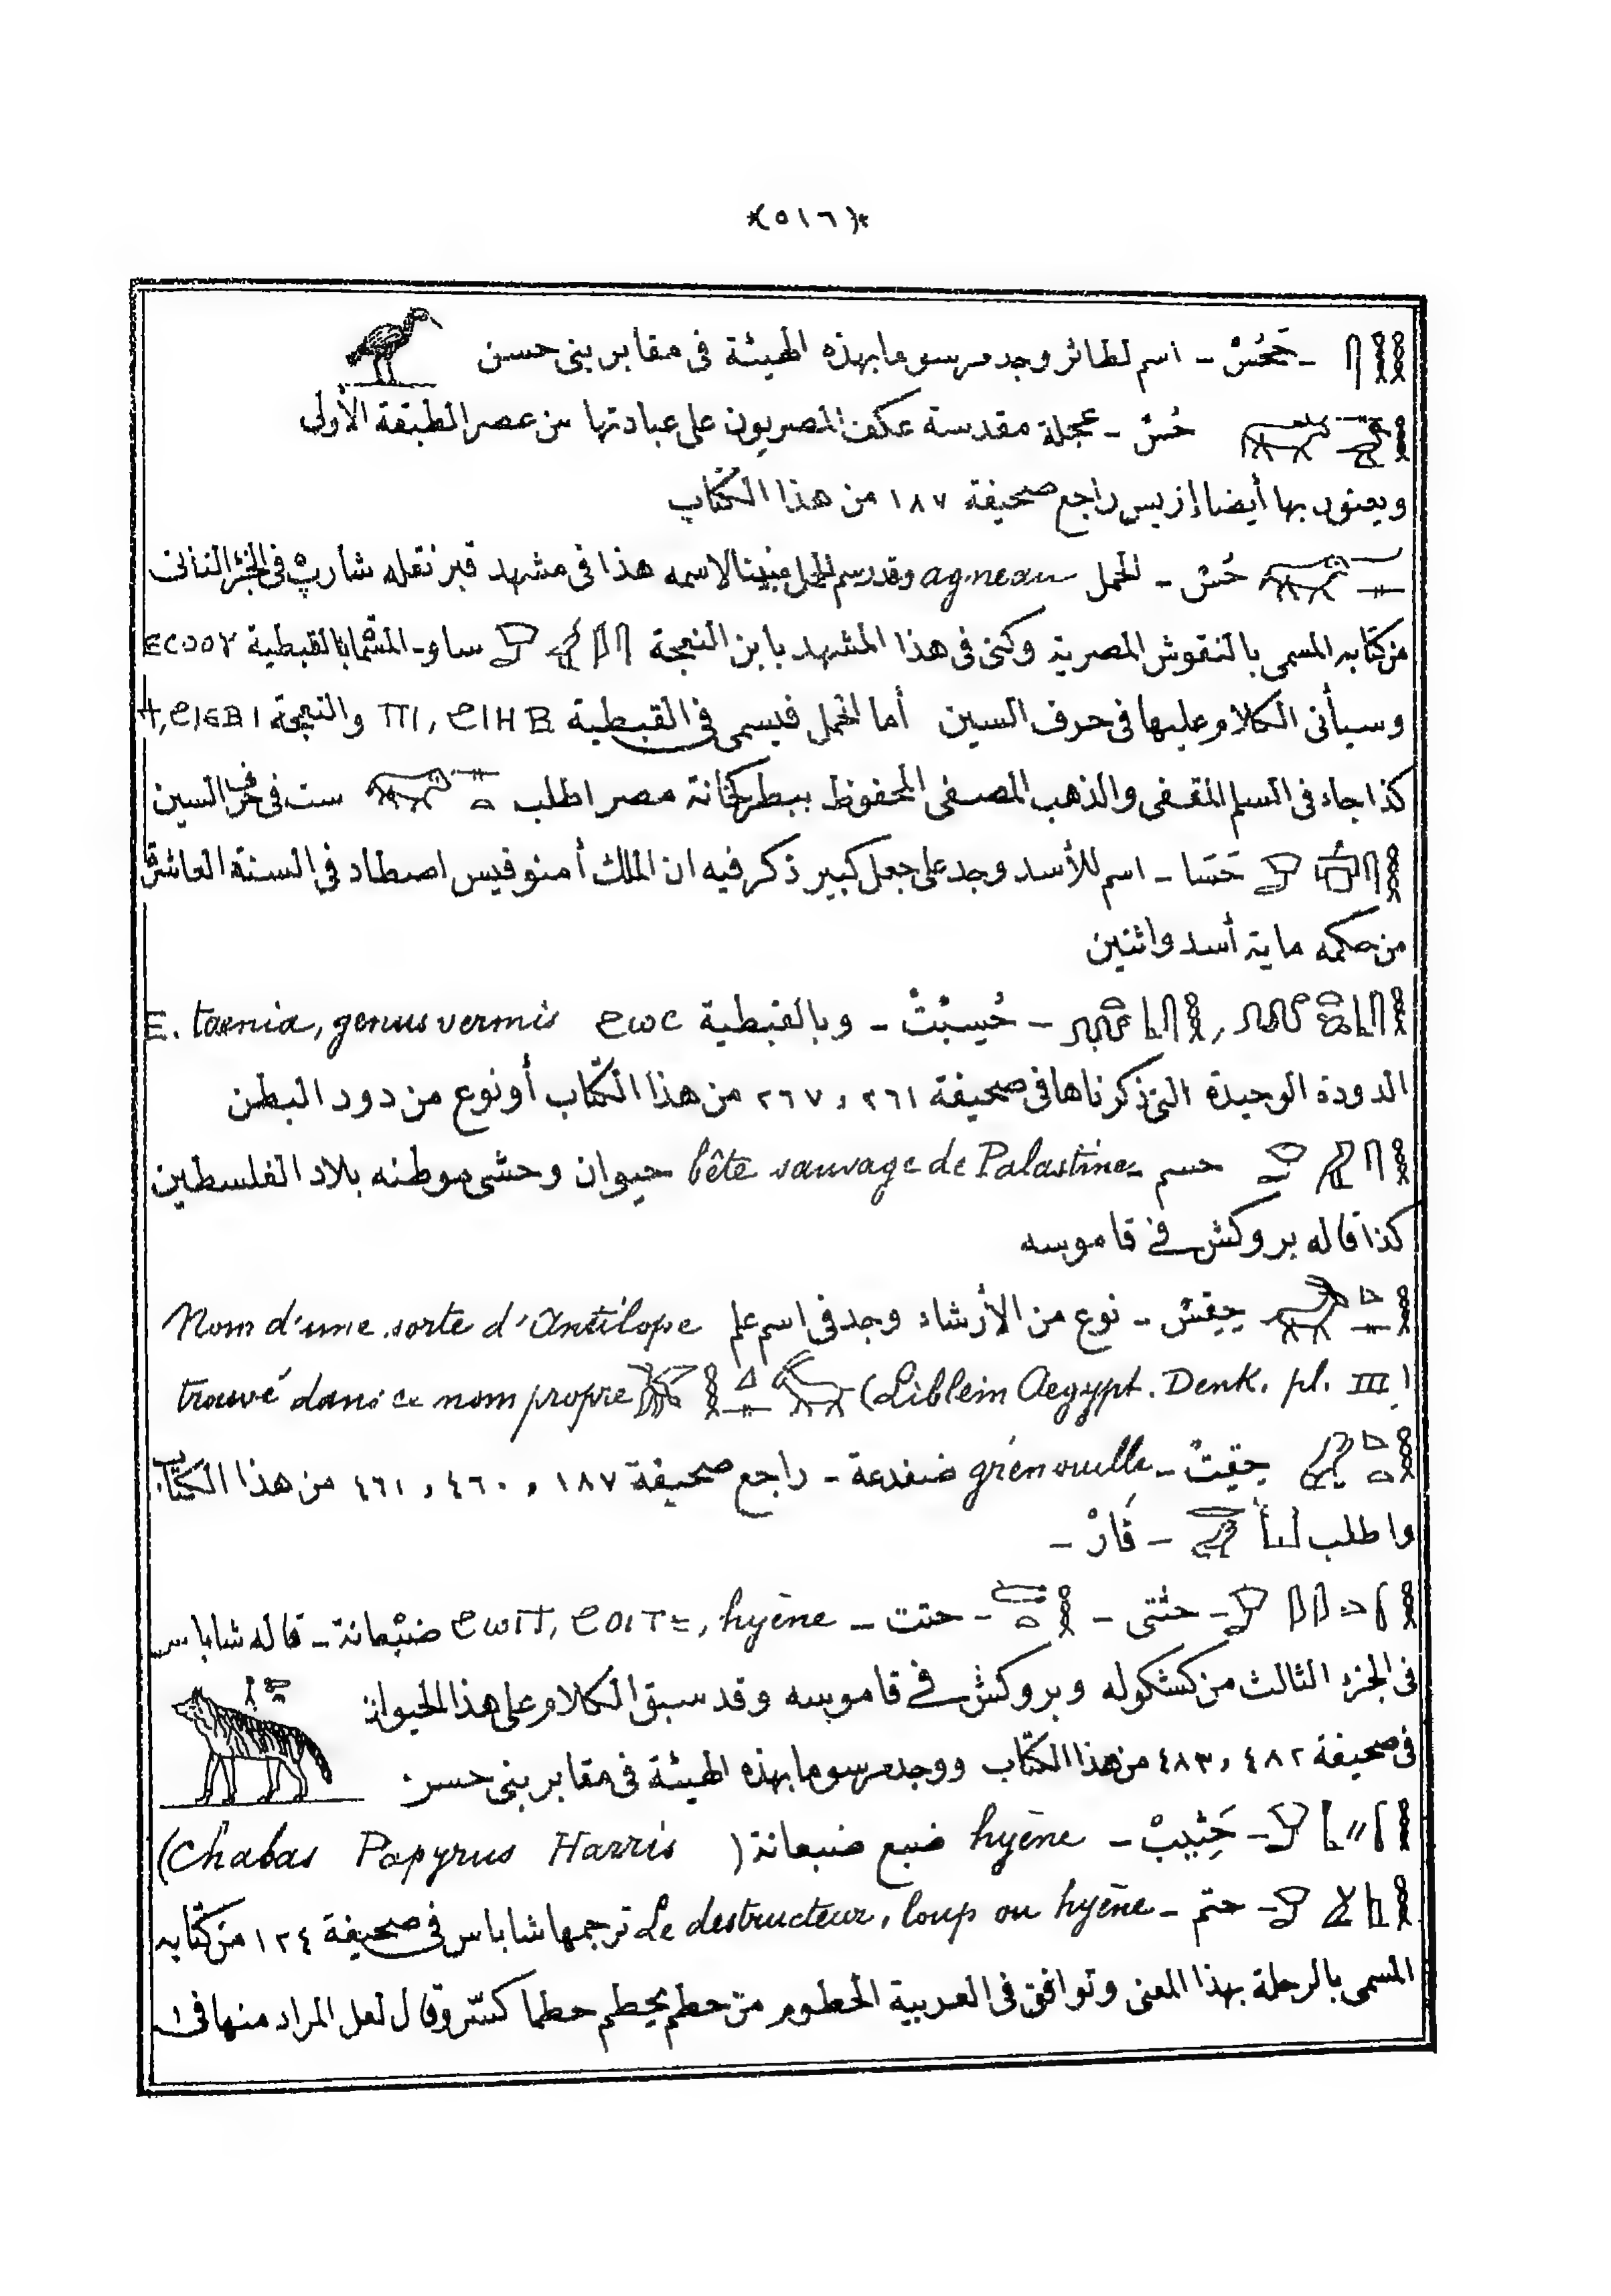 *(٥١٦)*
- حَحُسْ - اسم لطائر وجد مرسوما بهذه الهيئة فى مقابر بنى حسن
حُسْ - عجلة مقدسة عكف المصريون على عبادتها من عصر الطبقة الأولى
ويعنون بها أيضا إزيس راجع صحيفة ١٨٧ من هذا الكتاب
حُسْ - الحمل agneau وقد رسم الحمل مبينا لاسمه هذا فى مشهد قبر نقله شارپ فى الجزء الثانى
من كتابه المسمى بالنقوش المصرية وكنى فى هذا المشهد بابن النعجة ساو - المسماة بالقبطية ECOOY
وسيأتى الكلام عليها فى حرف السين أما الحمل فيسمى فى القبطية ΠΙ, ϩΙΗΒ والنعجة Ϯ, ϩΙΕΒΙ
كذا جاء فى السلم المقفى والذهب المصفى المحفوظ ببطركخانة مصر اطلب ست فى حرف السين
حَسَا - اسم للأسد وجد على جعل كبير ذكر فيه ان الملك أمنوفيس اصطاد فى السنة العاشرة
من حكمه ماية أسد واثنين
- حُسِبْتْ - وبالقبطية ϩωc E. taenia, genus vermis
الدودة الوحيدة التى ذكرناها فى صحيفة ٢٦١ , ٢٦٧ من هذا الكتاب أو نوع من دود البطن
حسم - bête sauvage de Palastine حيوان وحشى موطنه بلاد الفلسطين
كذا قاله بروكش فى قاموسه
حِقِسْ - نوع من الأرشاء وجد فى اسم علم Nom d'une sorte d'Antilope
trouvé dans ce nom propre (Liblein Aegypt. Denk. pl. III)
حِقِتْ - grénouille ضفدعة - راجع صحيفة ١٨٧ , ٤٦٠ , ٤٦١ من هذا الكتاب
واطلب - قَارْ -
- حثتى - - حتت - ϩωιϯ, ϩοιτε, hyène ضبعانة - قاله شاباس
فى الجزء الثالث من كشكوله وبروكش فى قاموسه وقد سبق الكلام على هذا الحيوان
فى صحيفة ٤٨٢ , ٤٨٣ من هذا الكتاب ووجد مرسوما بهذه الهيئة فى مقابر بنى حسن
- حَثِيبْ - hyène ضبع ضبعانة (Chabas Papyrus Harris)
- حتم - Le destructeur, loup ou hyène ترجمها شاباس فى صحيفة ١٢٤ من كتابه
المسمى بالرحلة بهذا المعنى وتوافق فى العربية الحطوم من حطم يحطم حطما كسر وقال لعل المراد منها فى